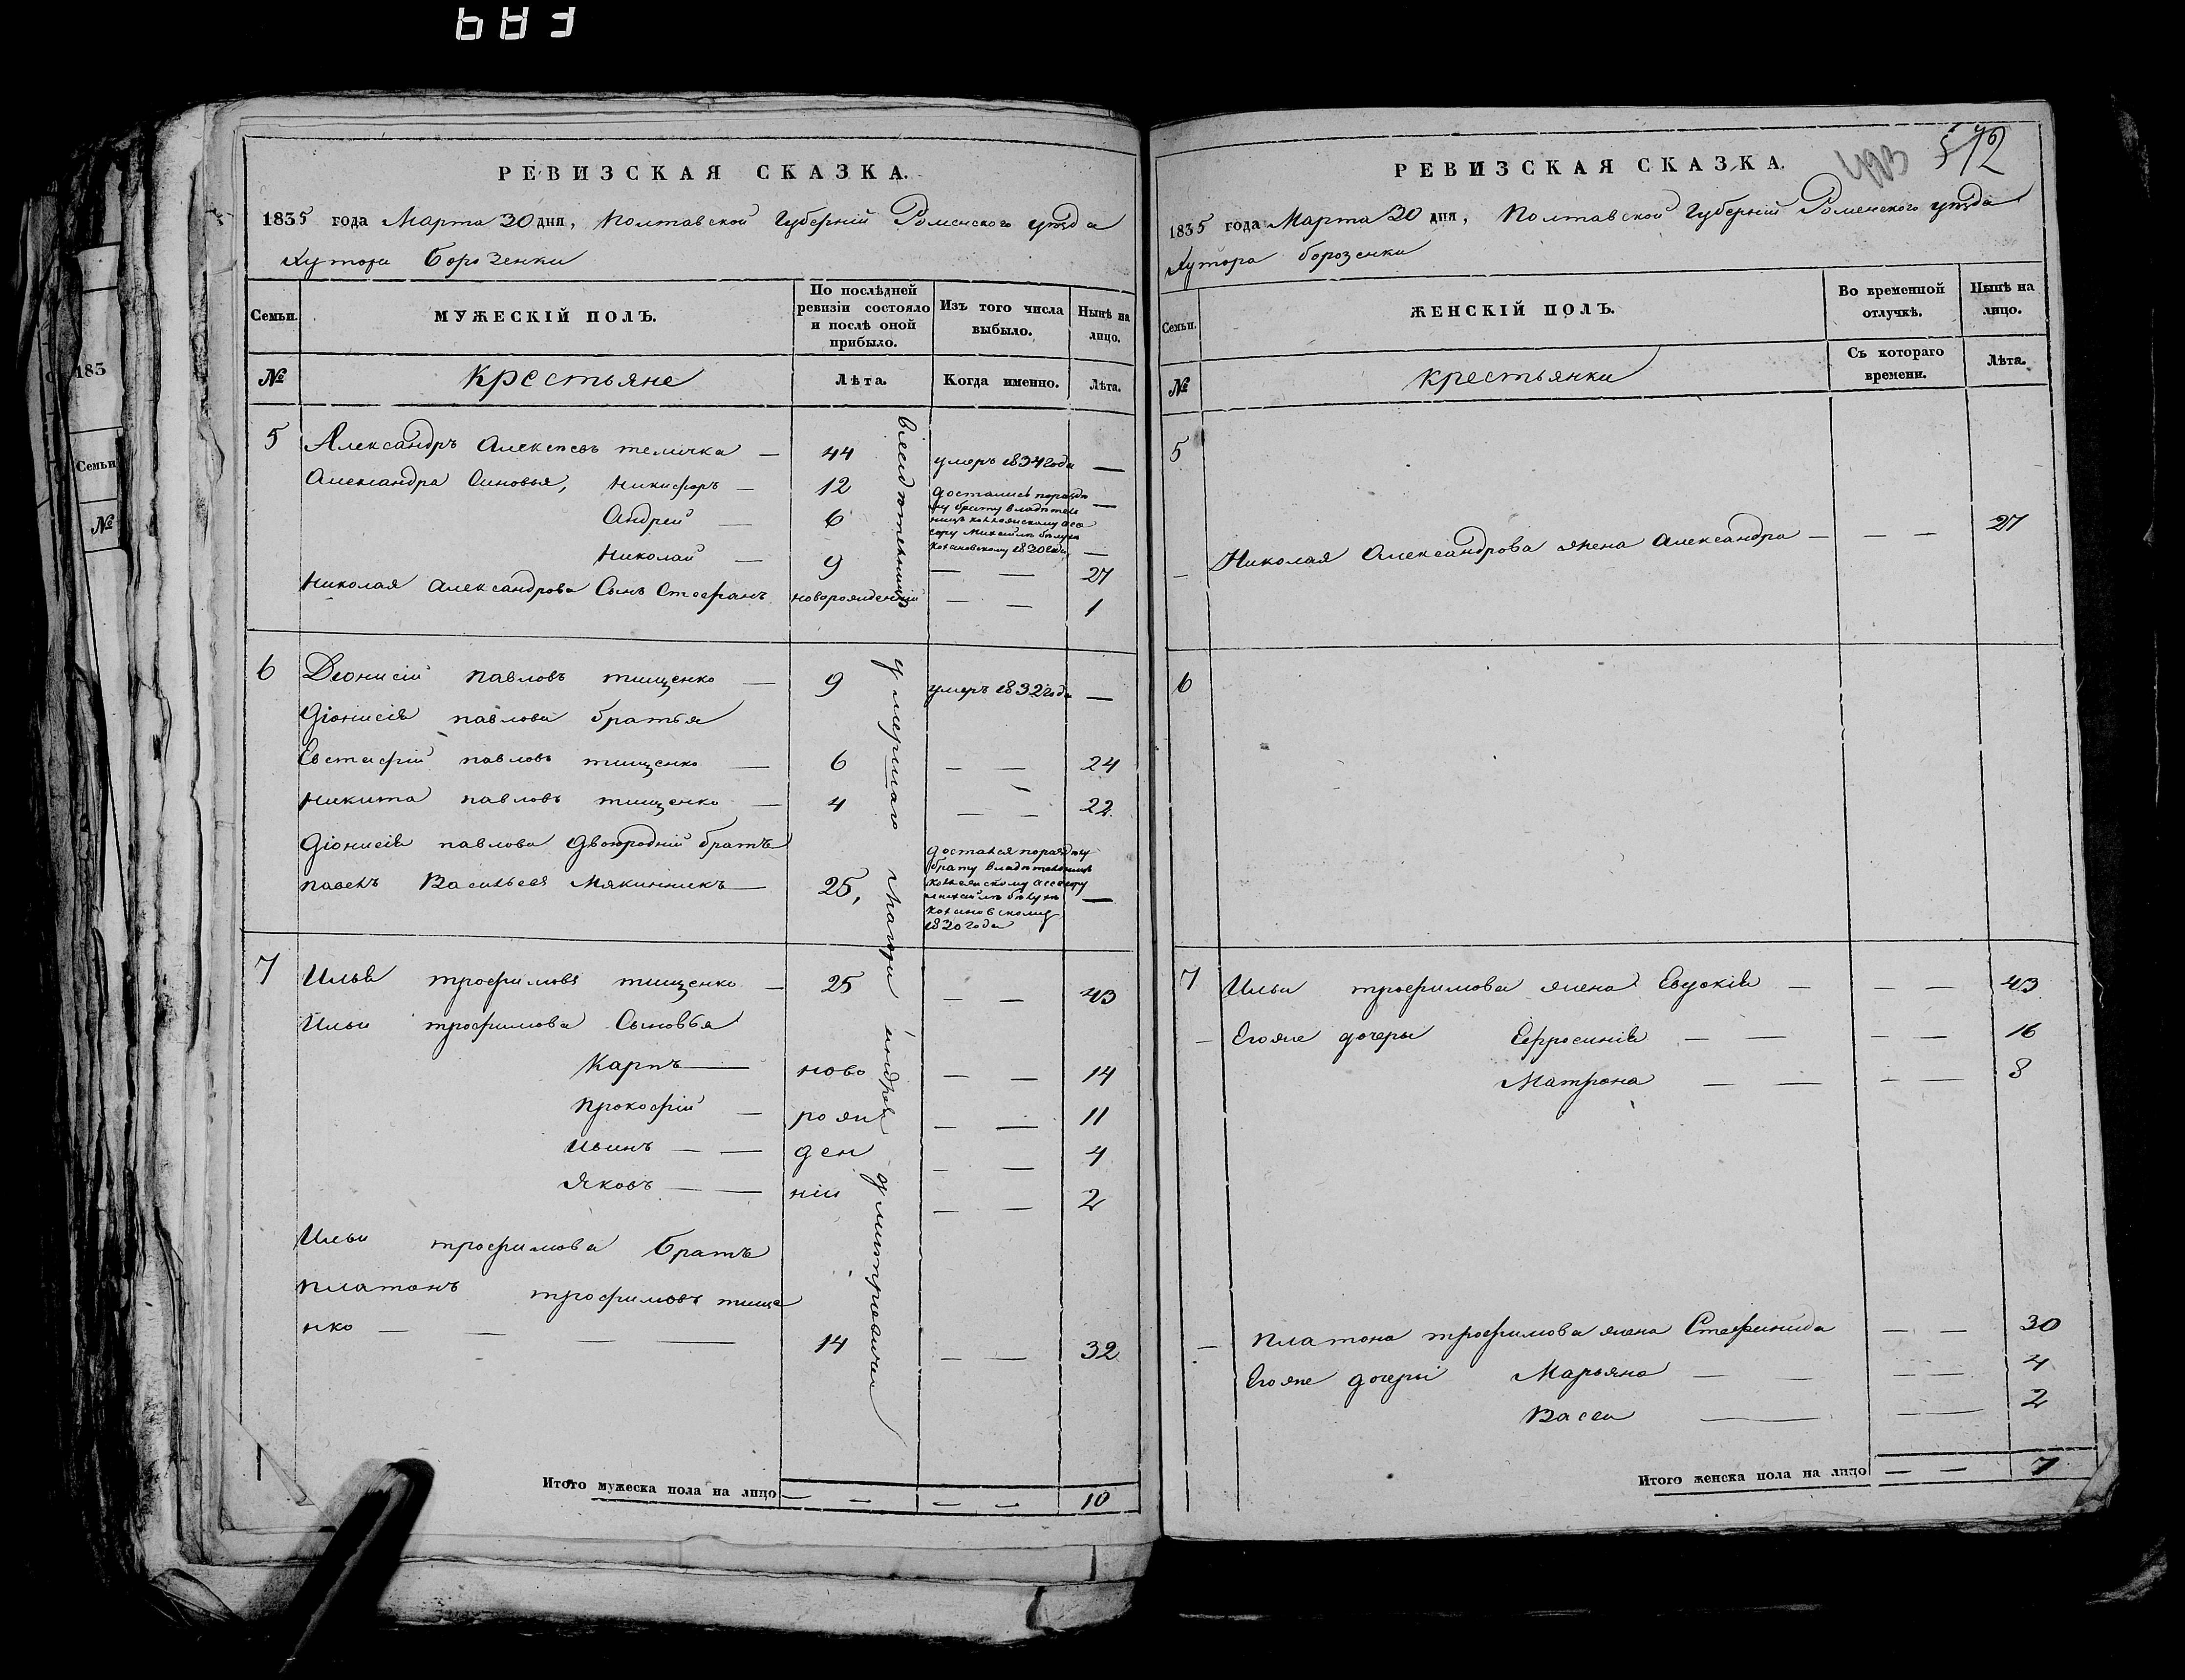 683
РЕВИЗСКАЯ СКАЗКА.
1835 года Марта 30 дня, Полтавской Губерній Роменского уѣзда
Хутора борозенки
Семьи.
МУЖЕСКІЙ ПОЛЪ.
По послѣдней ревизіи состояло и послѣ оной прибыло.
Изъ того числа выбыло.
Нынѣ на лицо.
№
Крестьяне
Лѣта.
Когда именно.
Лѣта.
5 Александръ Алексѣевъ теличка — 44 умеръ 1834 года —
Александра Сыновья, Никифоръ — 12 достались —
Андрей — 6 брату
Николай — 9 — — 27
1820 года —
Николая Александрова Сынъ Стефанъ новорожденній — — 1
6 Деонисій павловъ тищенко — 9 умеръ 1832 года —
Діонисія павлова братья
Евстафій павловъ тищенко — 6 — — 24
Никита павловъ тищенко — 4 — — 22
Діонисія павлова двоюродній братъ
павелъ Васильевъ Мякинникъ — 25, —
достался
брату
1820 года
7 Илья трофимовъ тищенко — 25 — — 43
Ильи трофимова Сыновья
Карпъ — ново — — 14
Прокофій — рож — — 11
Иванъ — — ден — — 4
Яковъ — — ніи — — 2
Ильи трофимова братъ
платонъ трофимовъ тище
нко — — — — 14 — — 32
умершаго
Итого мужеска пола на лицо — — — — 10
493
512
РЕВИЗСКАЯ СКАЗКА.
1835 года Марта 30 дня, Полтавской Губерній Роменского уѣзда
Хутора борозенки
Семьи.
ЖЕНСКІЙ ПОЛЪ.
Во временной отлучкѣ.
Нынѣ на лицо.
№
крестьянки
Съ котораго времени.
Лѣта.
5
— Николая Александрова жена Александра — — — 27
6
7 Ильи трофимова жена Евдокія — — — 43
— Егоже дочеры Ефросинія — — — — 16
Матрона — — — — 8
— платона трофимова жена Стефанида — — 30
Егоже дочеры Марьяна — — — — 4
Васса — — — 2
Итого женска пола на лицо — — 7
183
Семьи
№